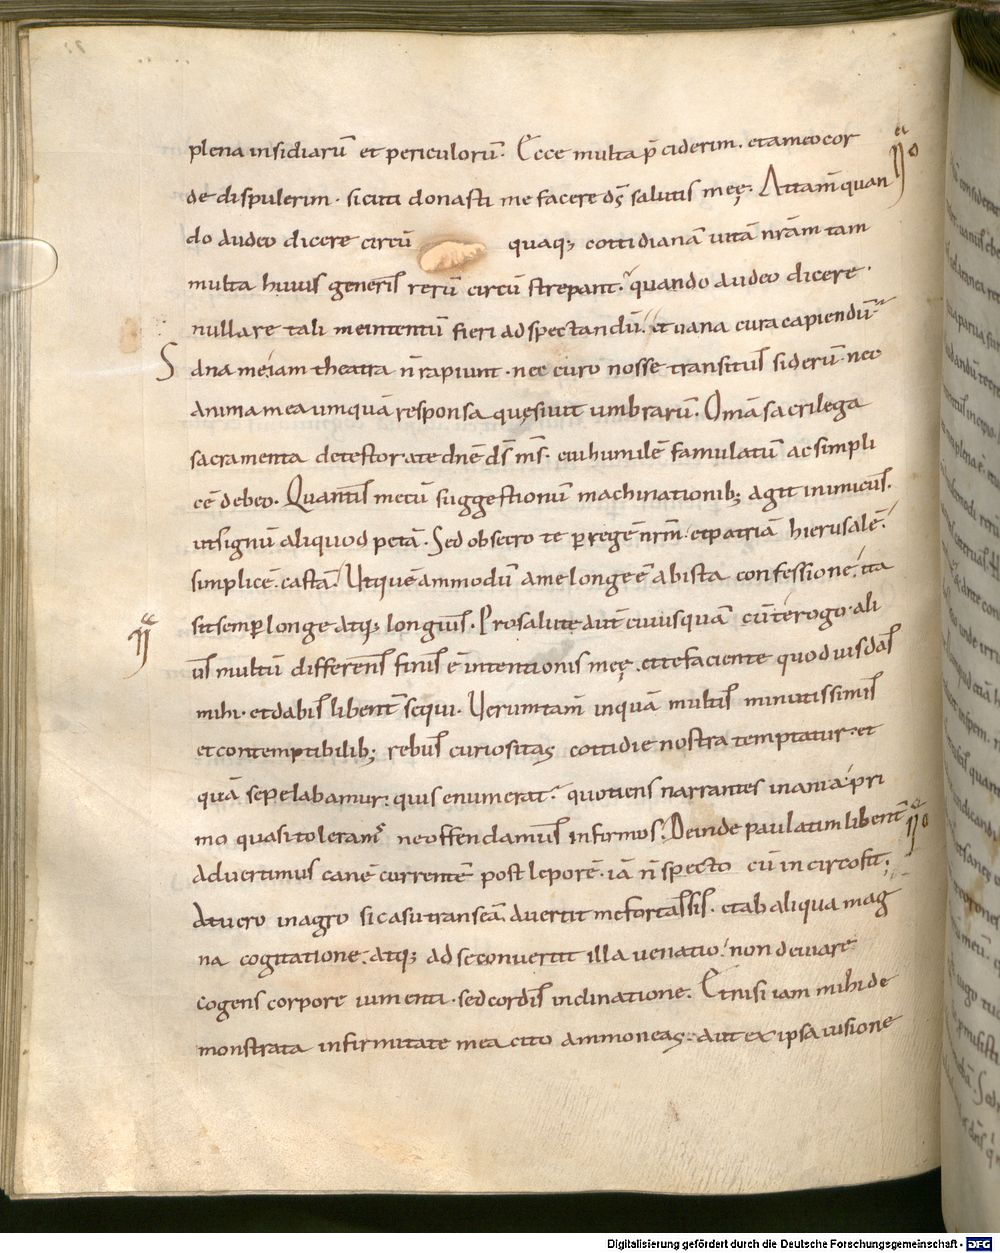 plena insidiarū et periculorū. Ecce multa p̄ciderim. et a meo cor
de dispulerim. sicuti donasti me facere d̄s salutis meę. Attam̄ quan
do audeo dicere circū quaq; cottidianā uitā nr̄am tam
multa huius generis rerū circū strepant. quando audeo dicere.
nulla re tali me intentū fieri ad spectandū. et uana cura capiendū
S dna me iam theatra n̄ rapiunt. nec curo nosse transitus siderū. nec
anima mea umquā responsa quęsiuit umbrarū. Om̄a sacrilega
sacramenta detestor. a te dn̄e d̄s m̄s. cui humilē famulatū ac simpli
cē debeo. Quantis mecū suggestionū machinationib; agit inimicus.
ut signū aliquod petā. Sed obsecro te p regē nrm̄. et patriā hierusalē.
simplicē. castā. Ut quēammodū a me longe ē ab ista confessione. ita
sit semp longe atq; longius. Pro salute aut̄ cuiusquā cū te rogo. ali
us multū differens finis ē intentionis meę. et te faciente quod uis das
mihi. et dabis libent̄ sequi. Uerumtam̄ in quā multis minutissimis
et contemptibilib; rebus curiositas cottidie nostra temptatur. et
quā sepe labamur. quis enumerat. quotiens narrantes inania. pri
mo quasi toleram᷒ ne offendamus infirmos. Deinde paulatim libent̄
aduertimus canē currentē post leporē. iā n̄ specto cū in circo fit;
At uero in agro si casu transeā. auertit me fortassis. et ab aliqua mag
na cogitatione. atq; ad se conuertit illa uenatio. non deuiare
cogens corpore iumenti. sed cordis inclinatione. Et nisi iam mihi de
monstrata infirmitate mea cito ammoneas. aut ex ipsa uisione
Digitalisierung gefördert durch die Deutsche Forschungsgemeinschaft - DFG